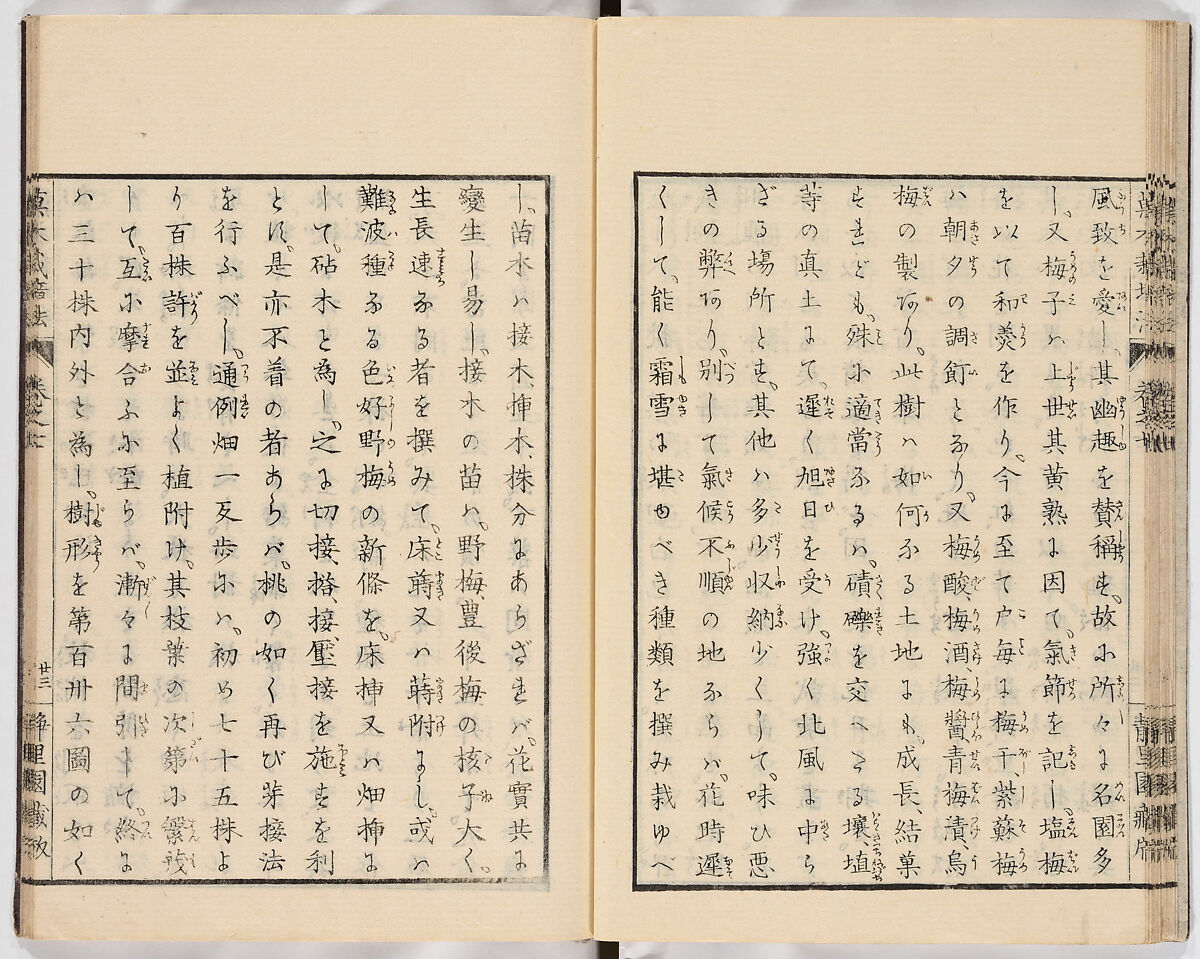 風致を愛し、其幽趣を賛稱す、故に所々に名園多
し、又梅子ハ上世其黄熟に因て、氣節を記し、塩梅
を以て和羮を作り、今に至て户毎に梅干、紫蘇梅
ハ朝夕の調飣となり、又梅酸、梅酒、梅醬、青梅漬、烏
梅の製あり、此樹ハ如何なる土地にも、成長、結菓
すれども、殊に適當なるハ、磧礫を交へたる壤、埴
等の真土にて、遲く旭日を受け、強く北風に中ら
ざる塲所とす、其他ハ多少収納少くして、味ひ悪
きの弊あり、別して氣候不順の地ならハ、花時遲
くして、能く霜雪に堪ゆべき種類を撰み栽ゆべ
し、苗木ハ接木、挿木、株分にあらざれバ、花實共に
變生し易し、接木の苗ハ、野梅、豊後梅の核子大く、
生長速なる者を撰みて、床蒔又ハ蒔附にし、或ハ
難波種なる色好野梅の新條を、床挿又ハ畑挿に
して、砧木と為し、之に切接、撘接、壓接を施すを利
とす、是亦不着の者あらバ、桃の如く再び芽接法
を行ふべし、通例畑一反歩にハ、初め七十五株よ
り百株許を並よく植附け、其枝葉の次第に繁茂
して、互に摩合ふに至らバ、漸々に間引して、終に
ハ三十株内外と為し、樹形を第百卅六圖の如く
卅三
静里園藏版